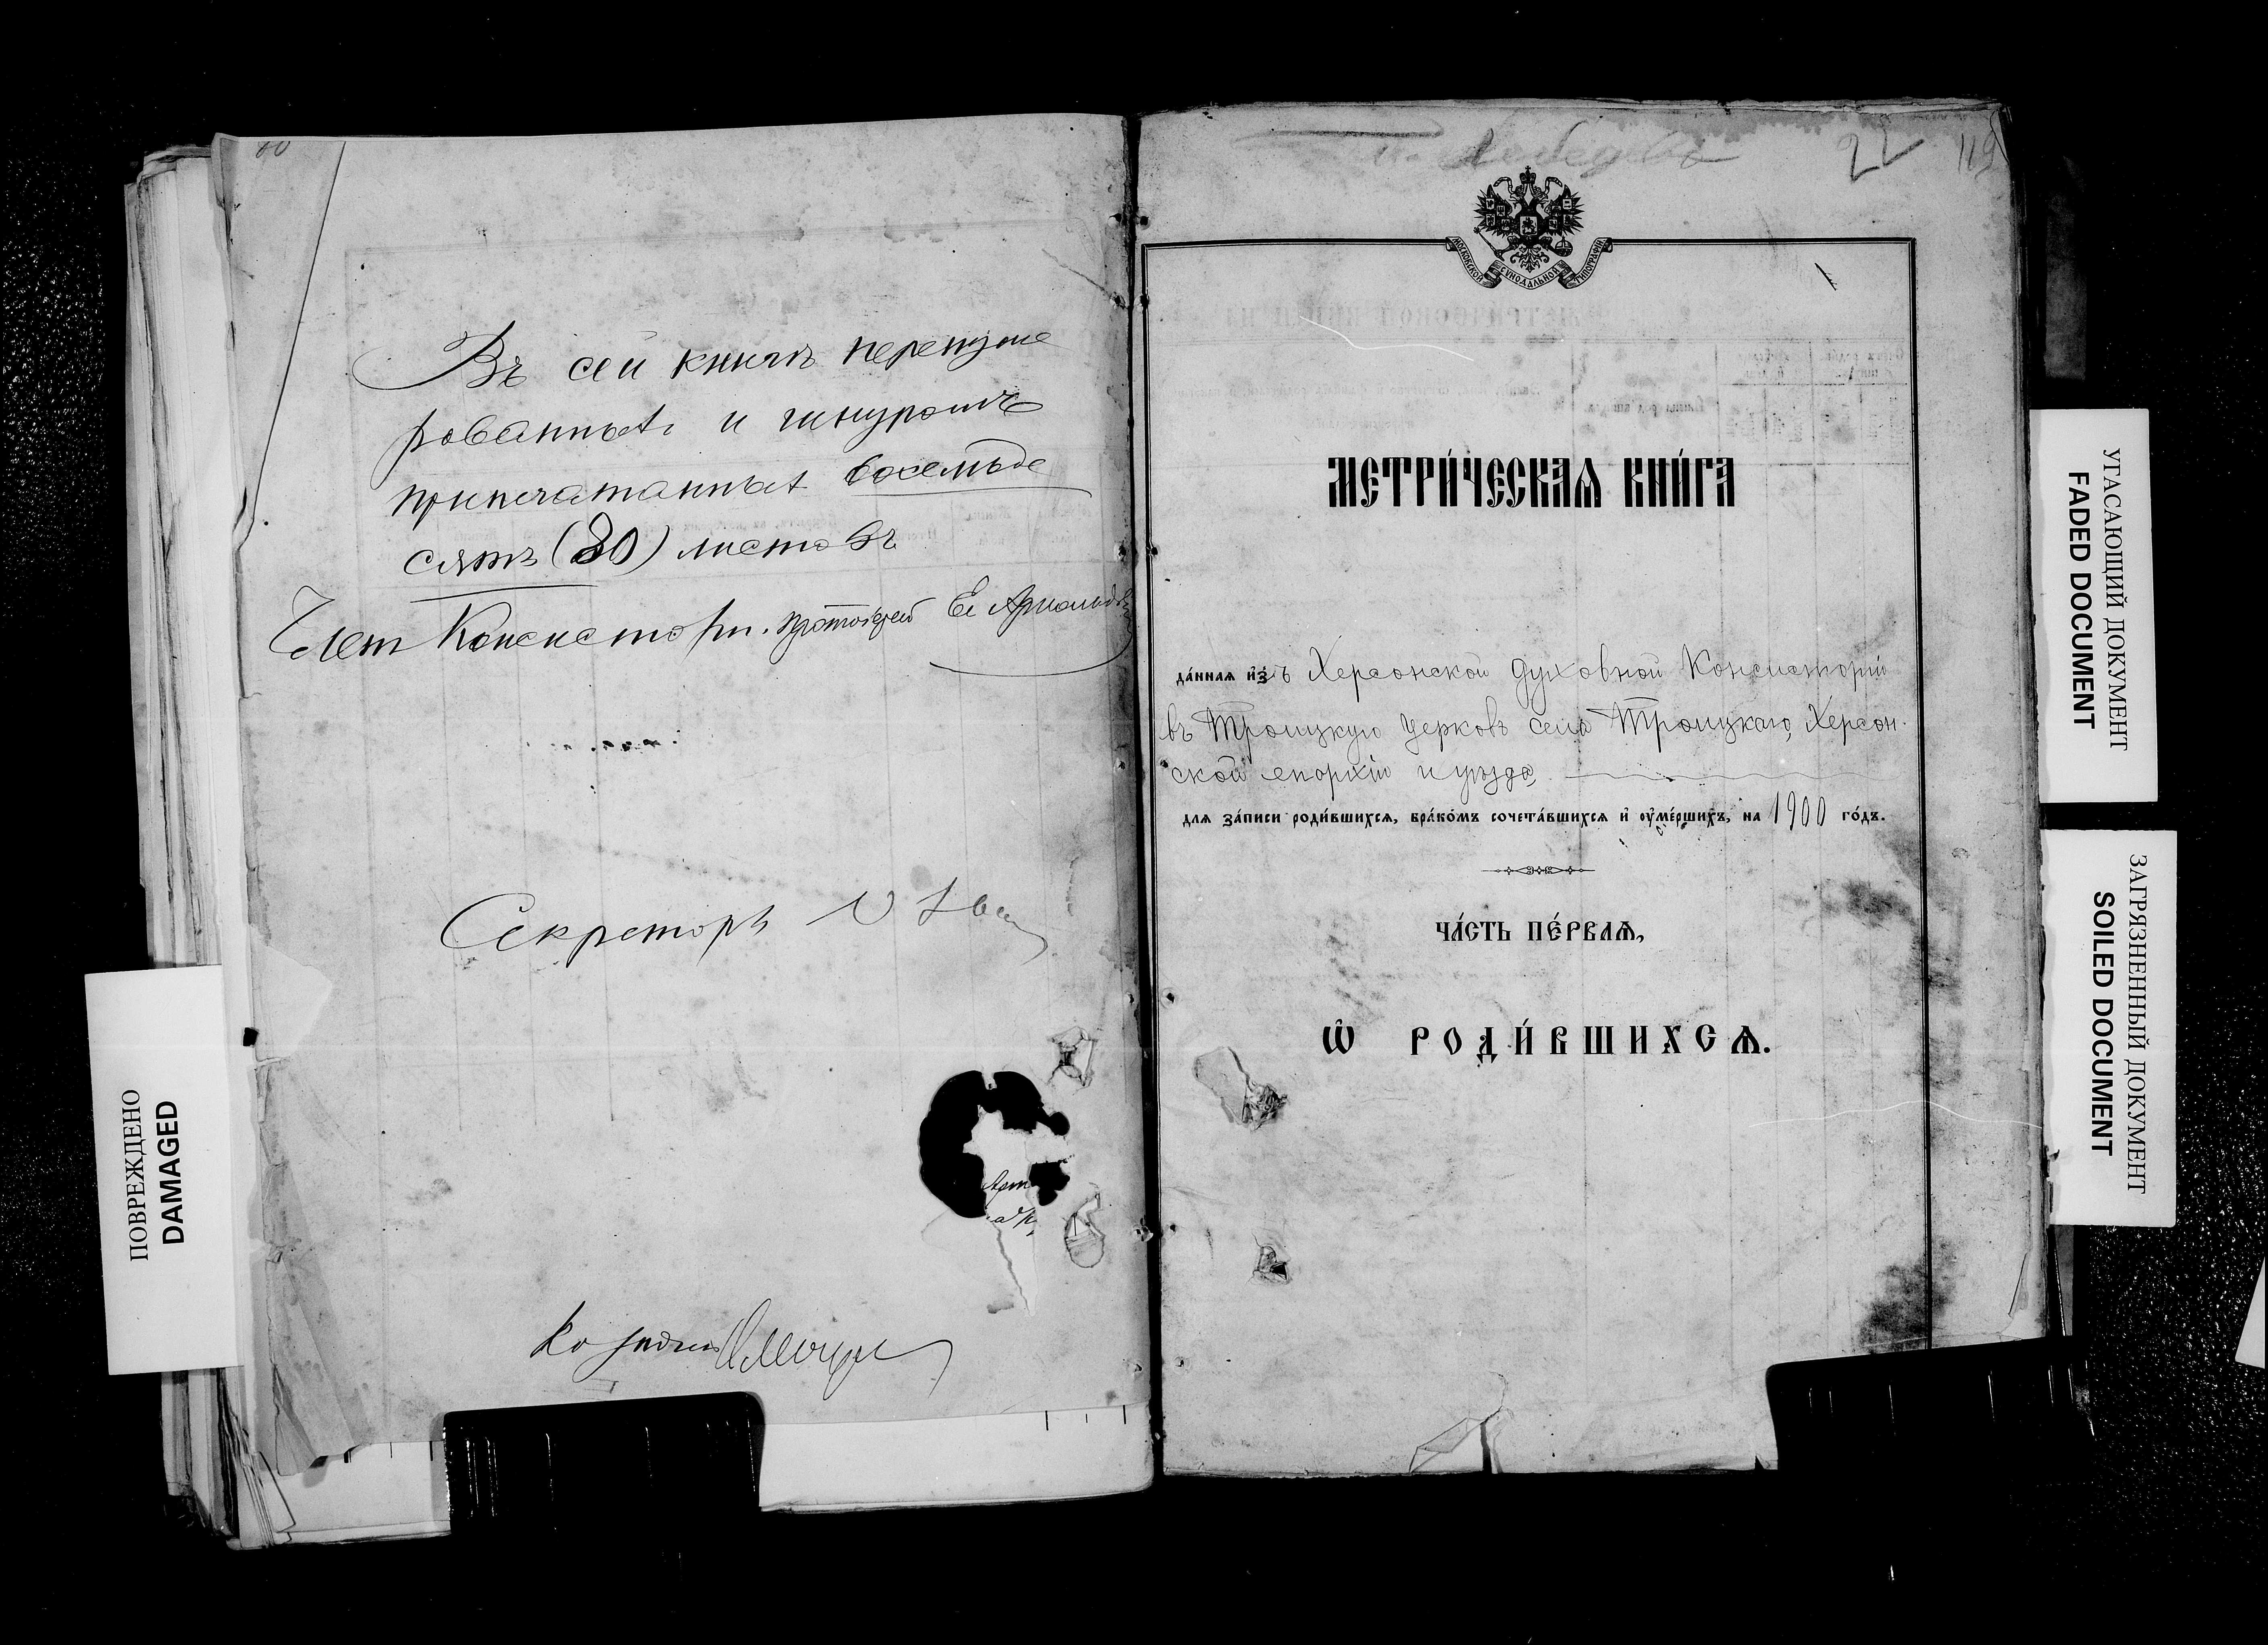 80
Въ сей книгѣ перенуме
рованныхъ и шнуромъ
припечатанныхъ восемьде
сятъ (80) листовъ
Член Консистор. протоіерей Ев Арнольдов
Секретарь
МОСКОВСКОЙ СѴНОДАЛЬНОЙ ТИПОГРАФІИ
22 119
МЕТРИ́ЧЕСКАѦ КНИ́ГА
да́ннаѧ и҆зъ Херсонской Духовной Консисторіи
въ Троицкую церковь села Троицкаго, Херсон-
ской епархіи и уѣзда,
длѧ за́писи роди́вшихсѧ, бра́комъ сочета́вшихсѧ и҆ ᲂу҆ме́ршихъ, на 1900 го́дъ.
ЧА́СТЬ ПЕ́РВАѦ,
Ѽ РОДИ́ВШИХСѦ.
ПОВРЕЖДЕНО
DAMAGED
УГАСАЮЩИЙ ДОКУМЕНТ
FADED DOCUMENT
ЗАГРЯЗНЕННЫЙ ДОКУМЕНТ
SOILED DOCUMENT